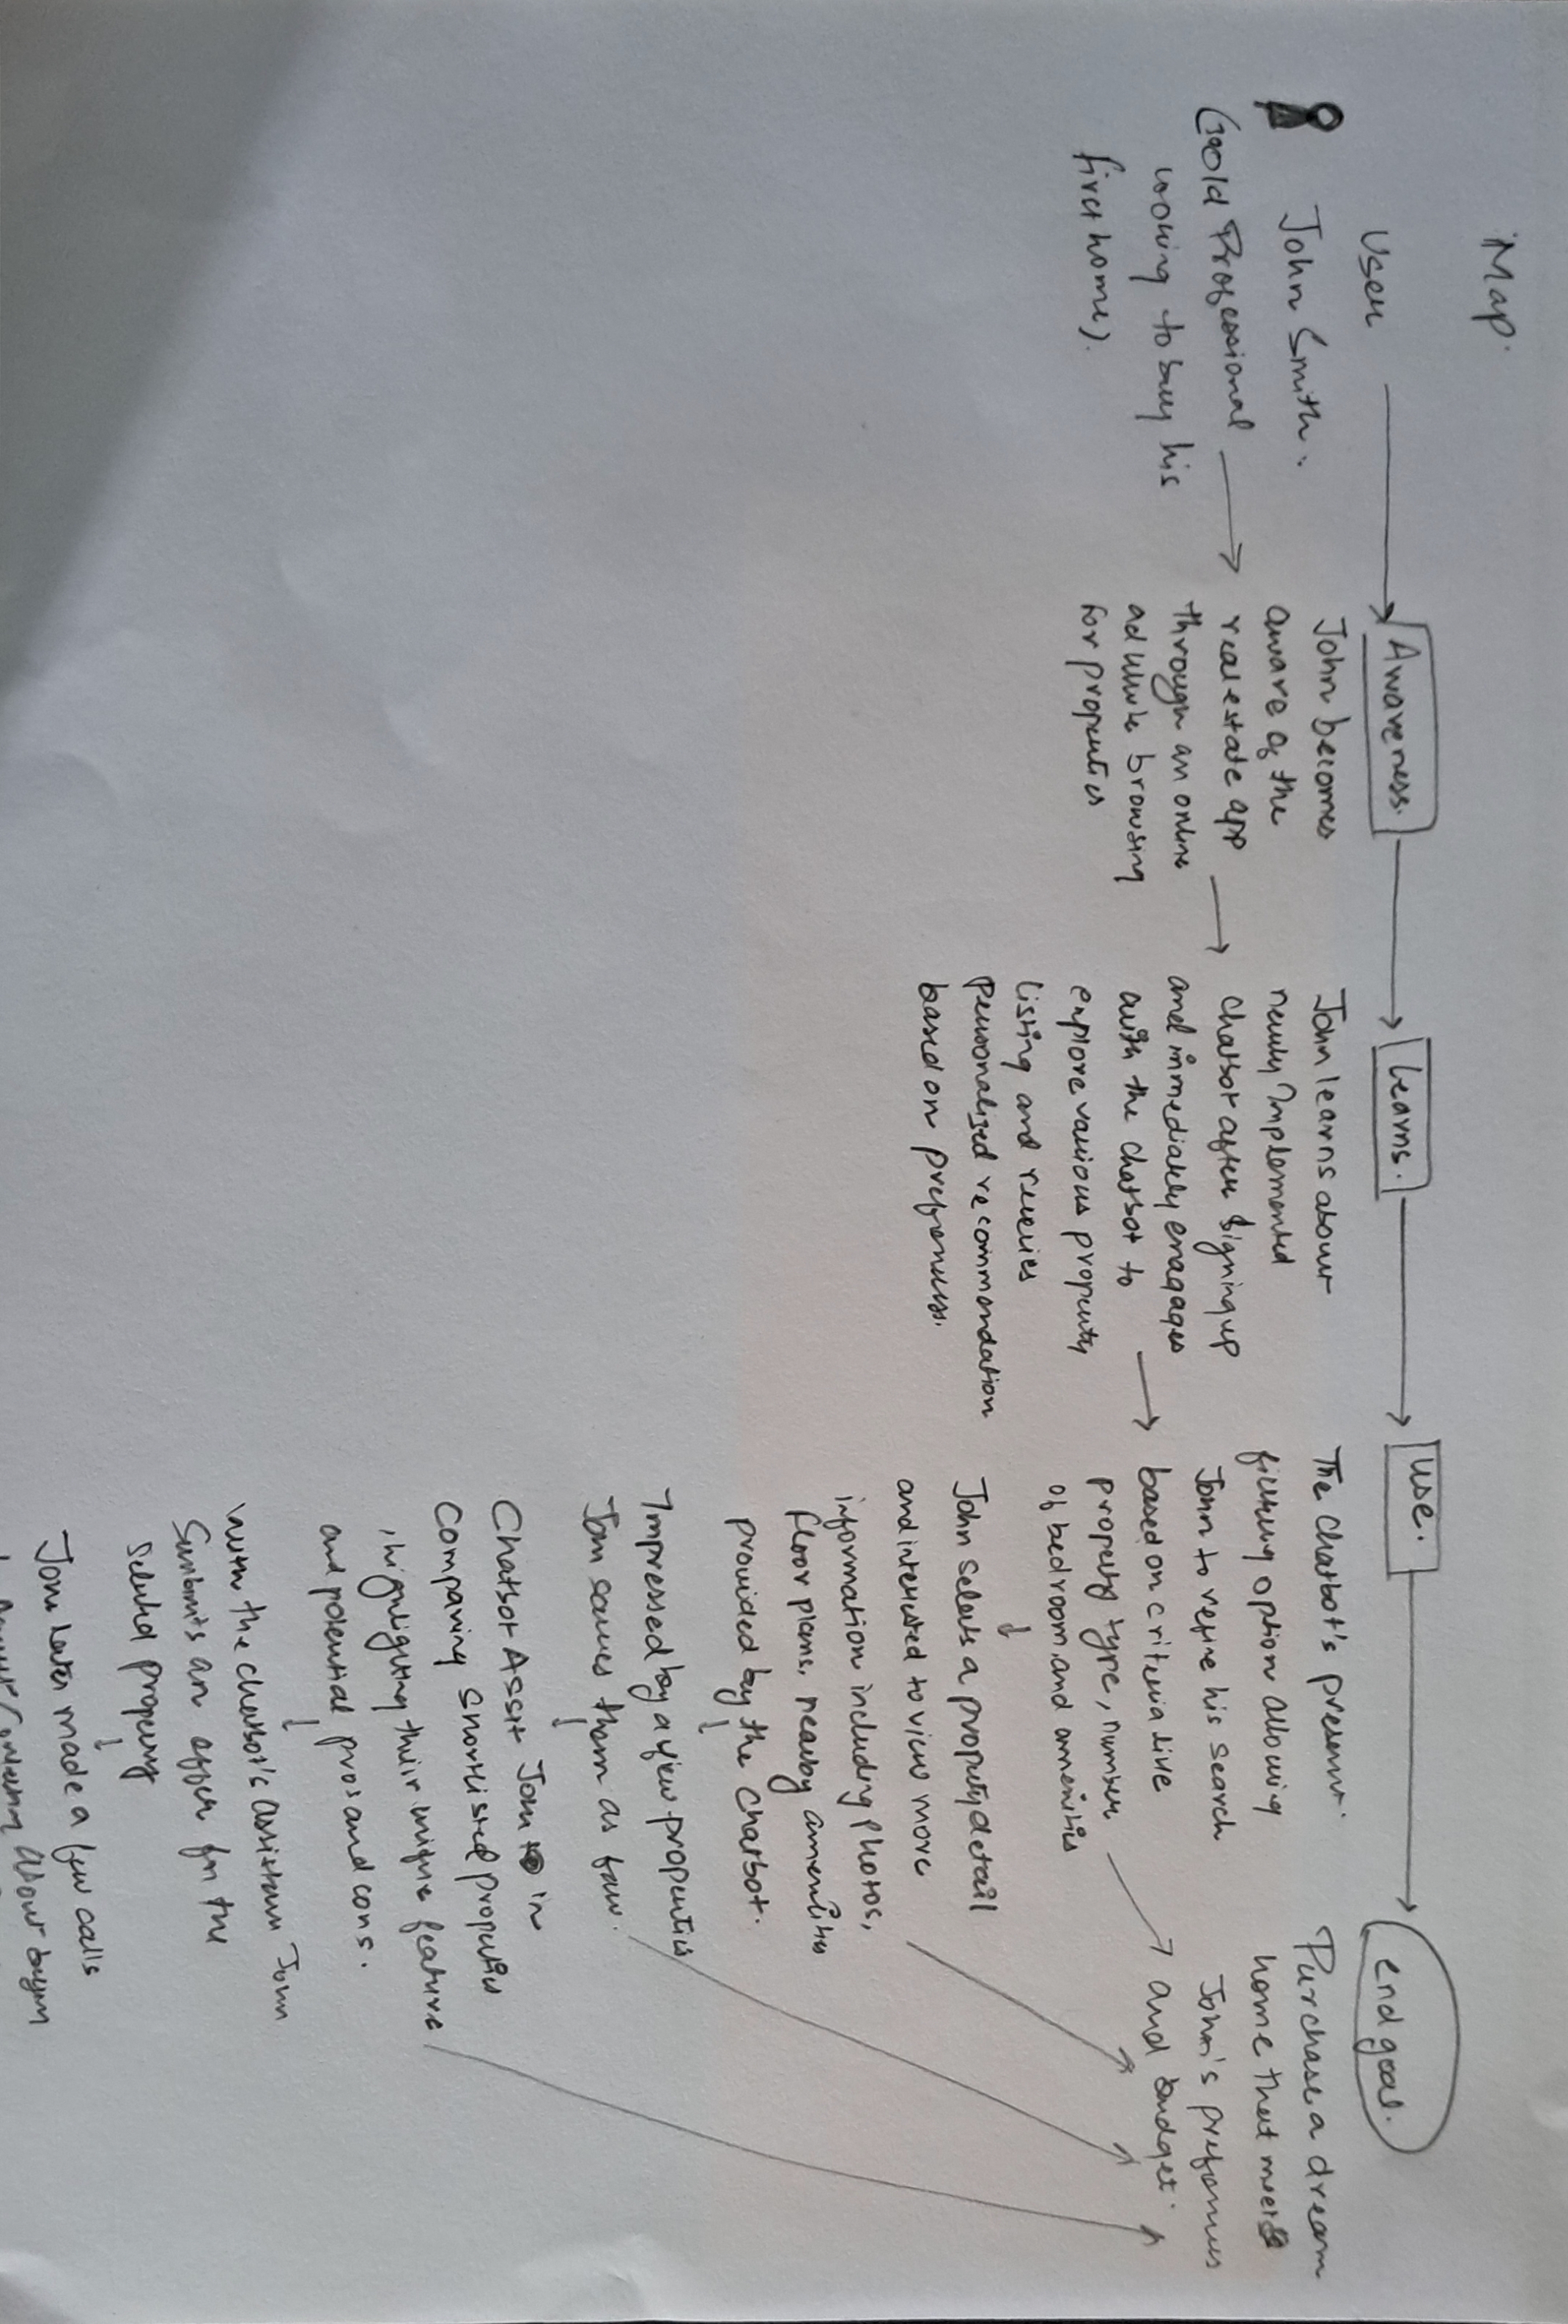 Map.
User
John Smith.
(30 old Professional
looking to buy his
first home).
Awareness.
John becomes
aware of the
real estate app
through an online
ad while browsing
for properties
learns.
John learns about
newly Implemented
Chatbot after Signing up
and immediately enagages
with the chatbot to
explore various property
listing and
personalized recommendation
based on preferences.
use.
The Chatbot's present
filtering option Allowing
John to refine his search
based on criteria like
property type, number
of bedroom, and amenities
John selects a property detail
and interested to view more
information including photos,
floor plans, nearby amenities
provided by the Chatbot.
Impressed by a few properties
John saves them as fav.
Chatbot Assit John in
Comparing Shortlisted properties
, highlighting their unique feature
and potential pros and cons.
with the chatbot's Assistance John
Sumbits an offer for the
selected property
John later made a few calls
About buying
end goal.
Purchase a dream
home that meets
John's preferences
and budget.